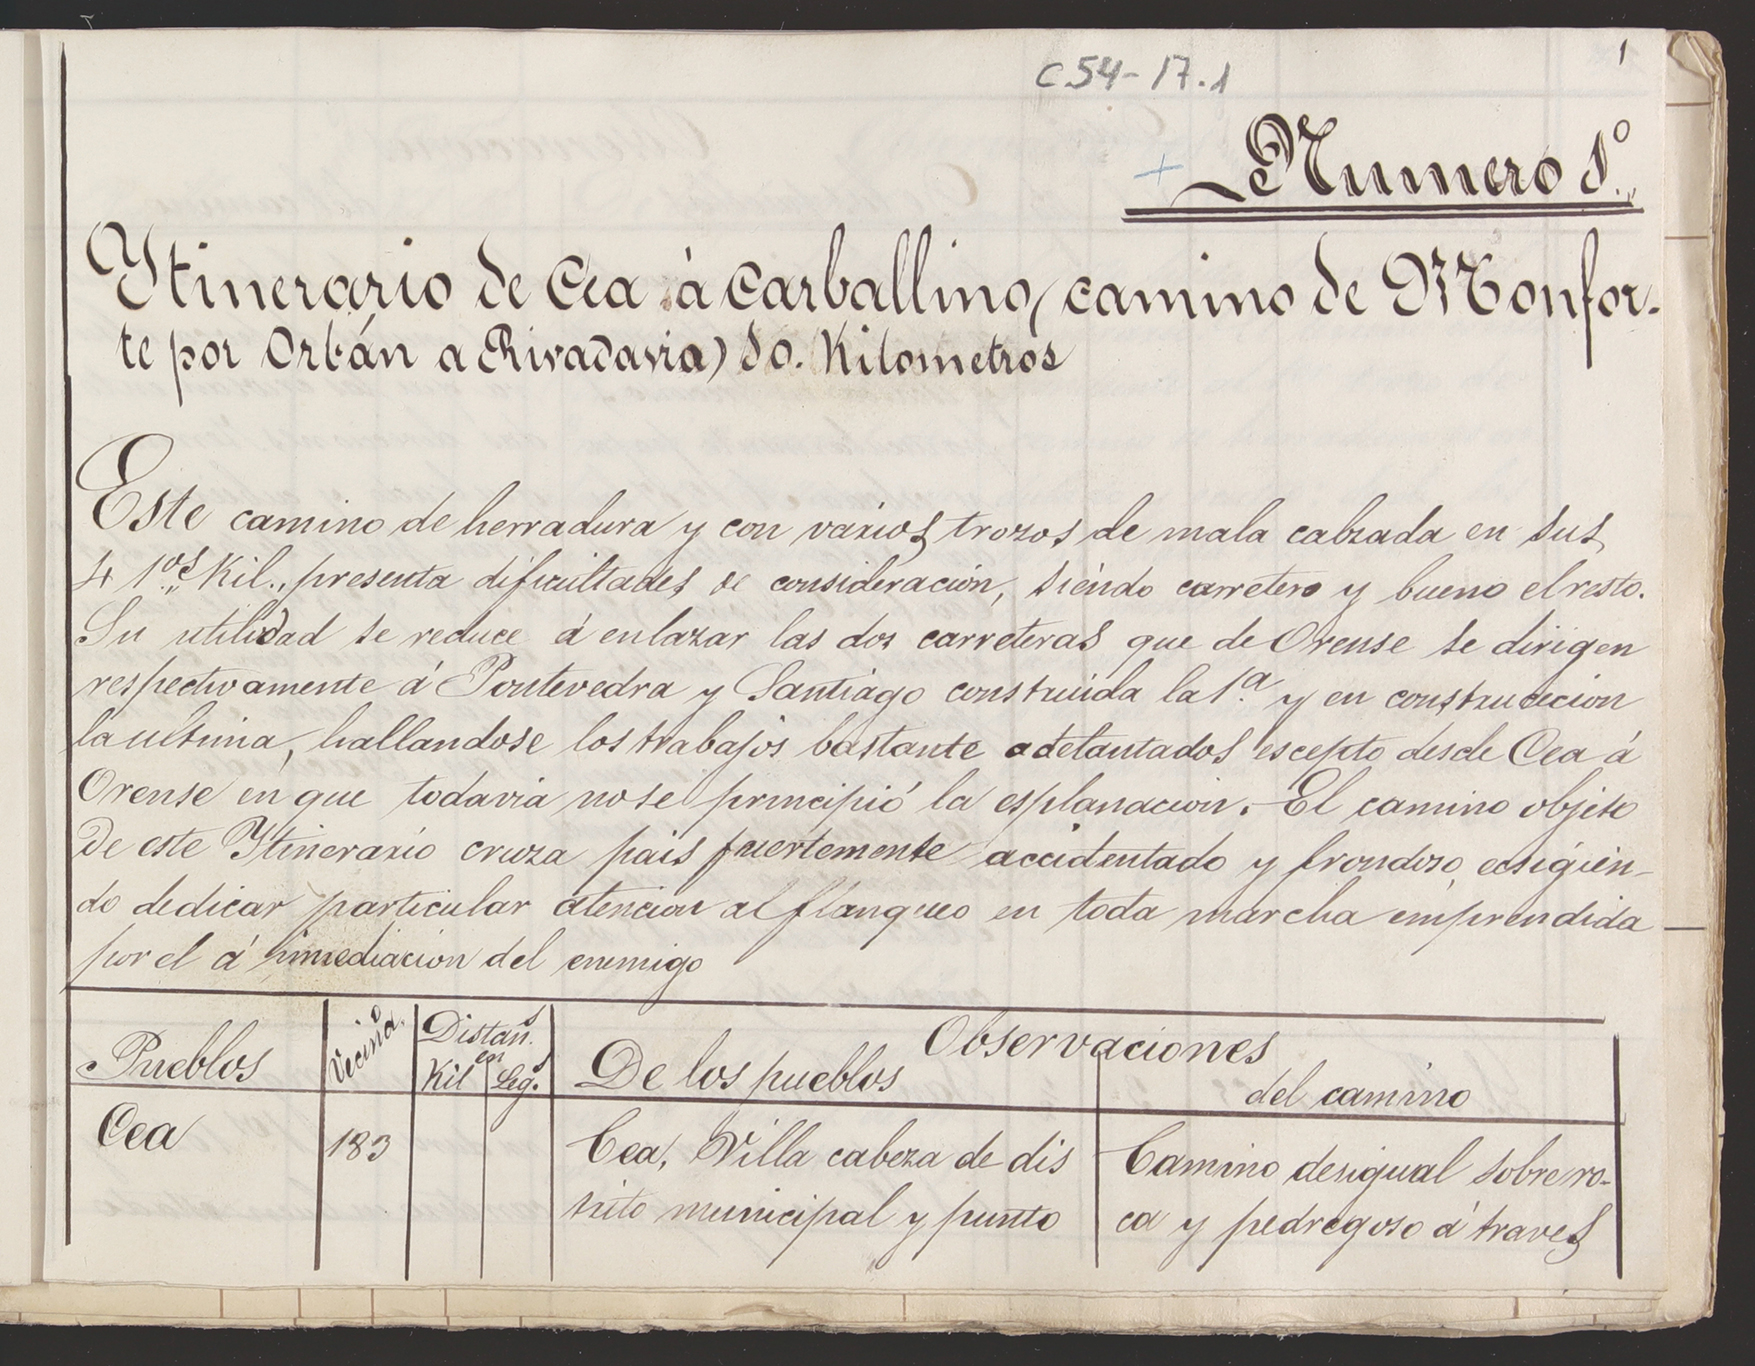 1
C.54-17.1
Numero 1º
Ytinerario de Cea á Carballino (camino de Monfor-
te por Orbán a Rivadavia) 10. Kilometros
Este camino de herradura y con varios trozos de mala calzada en sus
4 1.os Kil., presenta dificultades de consideración, siendo carretero y bueno el resto.
Su utilidad se reduce á enlazar las dos carreteras que de Orense se dirigen
respectivamente á Pontevedra y Santiago construida la 1.ª y en construccion
la ultima, hallandose los trabajos bastante adelantados escepto desde Cea á
Orense en que todavia no se principió la esplanacion. El camino objeto
de este Ytinerario cruza pais fuertemente accidentado y frondoso, ecsigien-
do dedicar particular atencion al flanqueo en toda marcha emprendida
por el á inmediacion del enemigo
Pueblos
Vecind.o
Distan.s
en
Kil
Leg.s
Observaciones
De los pueblos
del camino
Cea
183
Cea, Villa cabeza de dis
trito municipal y punto
Camino desigual sobre ro-
ca y pedregoso á traves